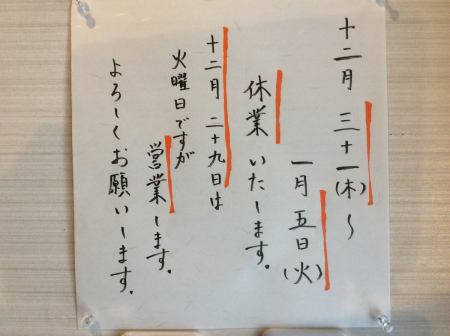 十二月 三十一(木)～
一月 五日(火)
休業いたします。
十二月 二十九日は
火曜日ですが
営業します。
よろしくお願いします。